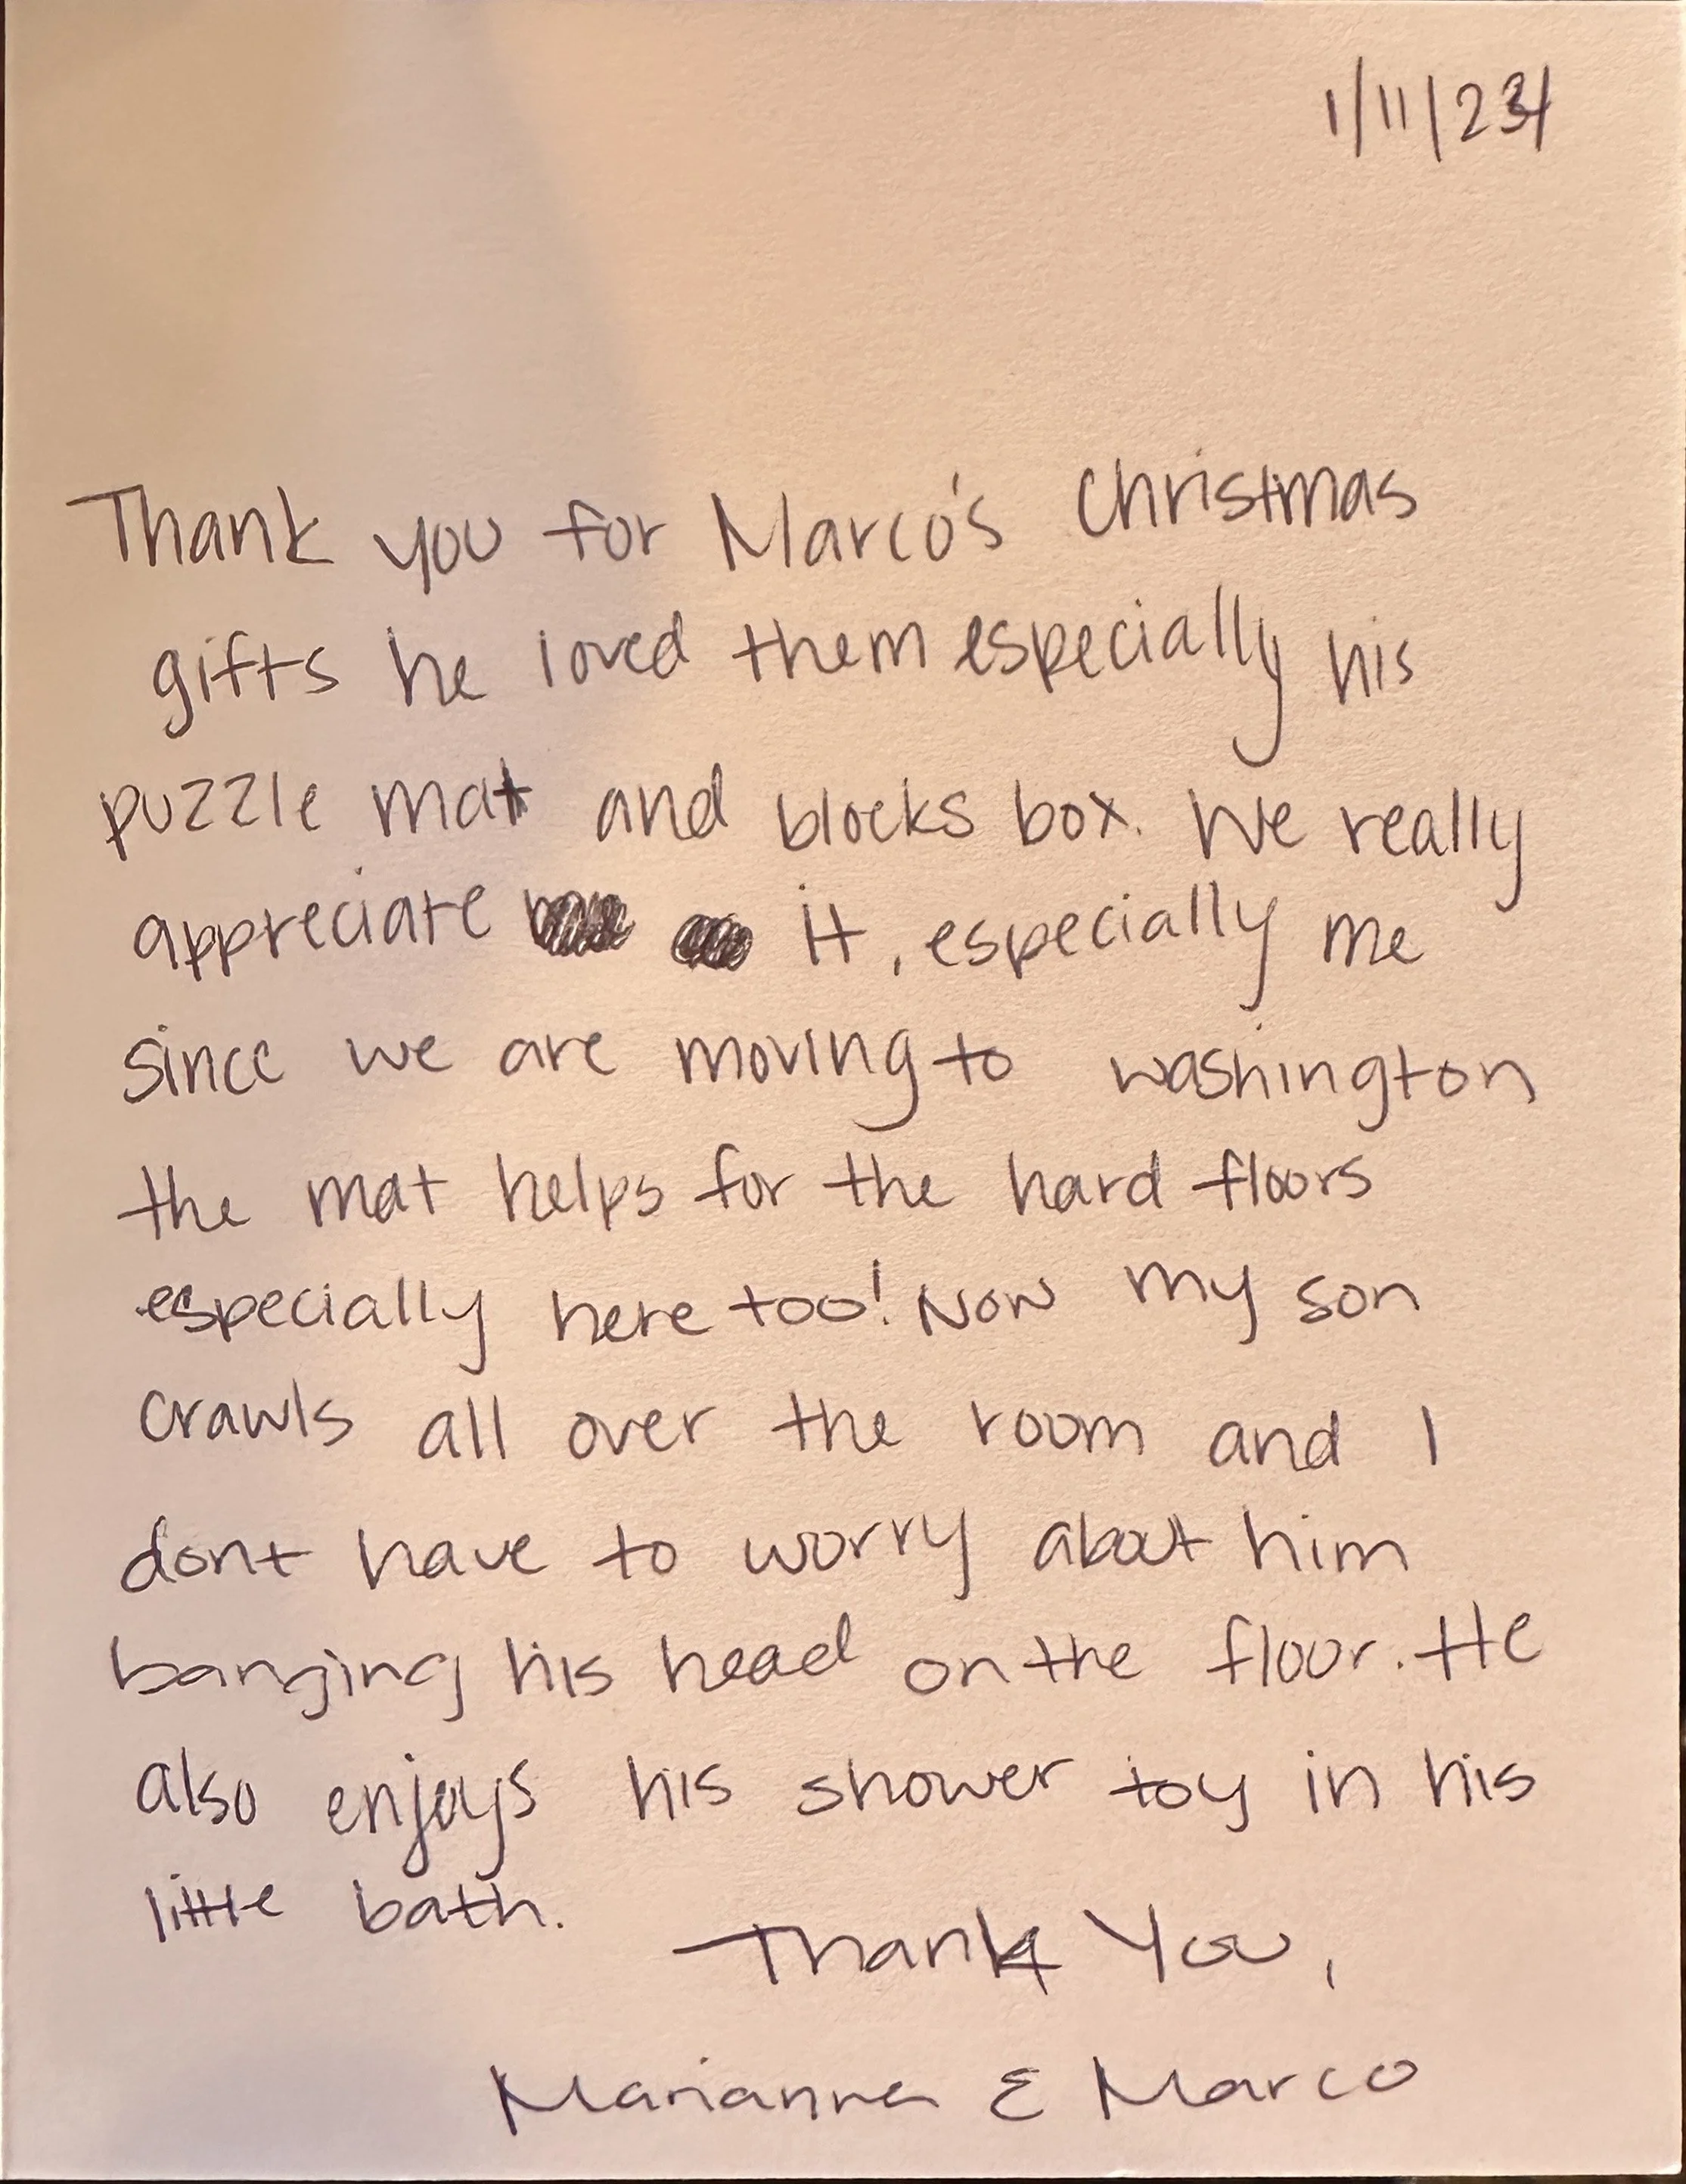 1/11/24
Thank you for Marco's Christmas
gifts he loved them especially his
puzzle mat and blocks box. We really
appreciate it, especially me
since we are moving to washington
the mat helps for the hard floors
especially here too! Now my son
crawls all over the room and I
dont have to worry about him
banging his head on the floor. He
also enjoys his shower toy in his
little bath.
Thank You,
Marianna & Marco